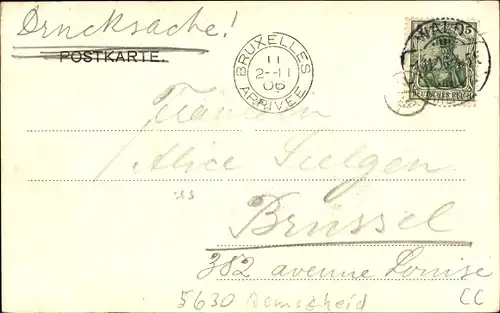 Drucksache!
POSTKARTE.
BRUXELLES
11
2--11
06
ARRIVEE
WALD
5
DEUTSCHES REICH
Fräulein
Alice Selgen
Brüssel
382 avenue Louise
5630 Remscheid
CC